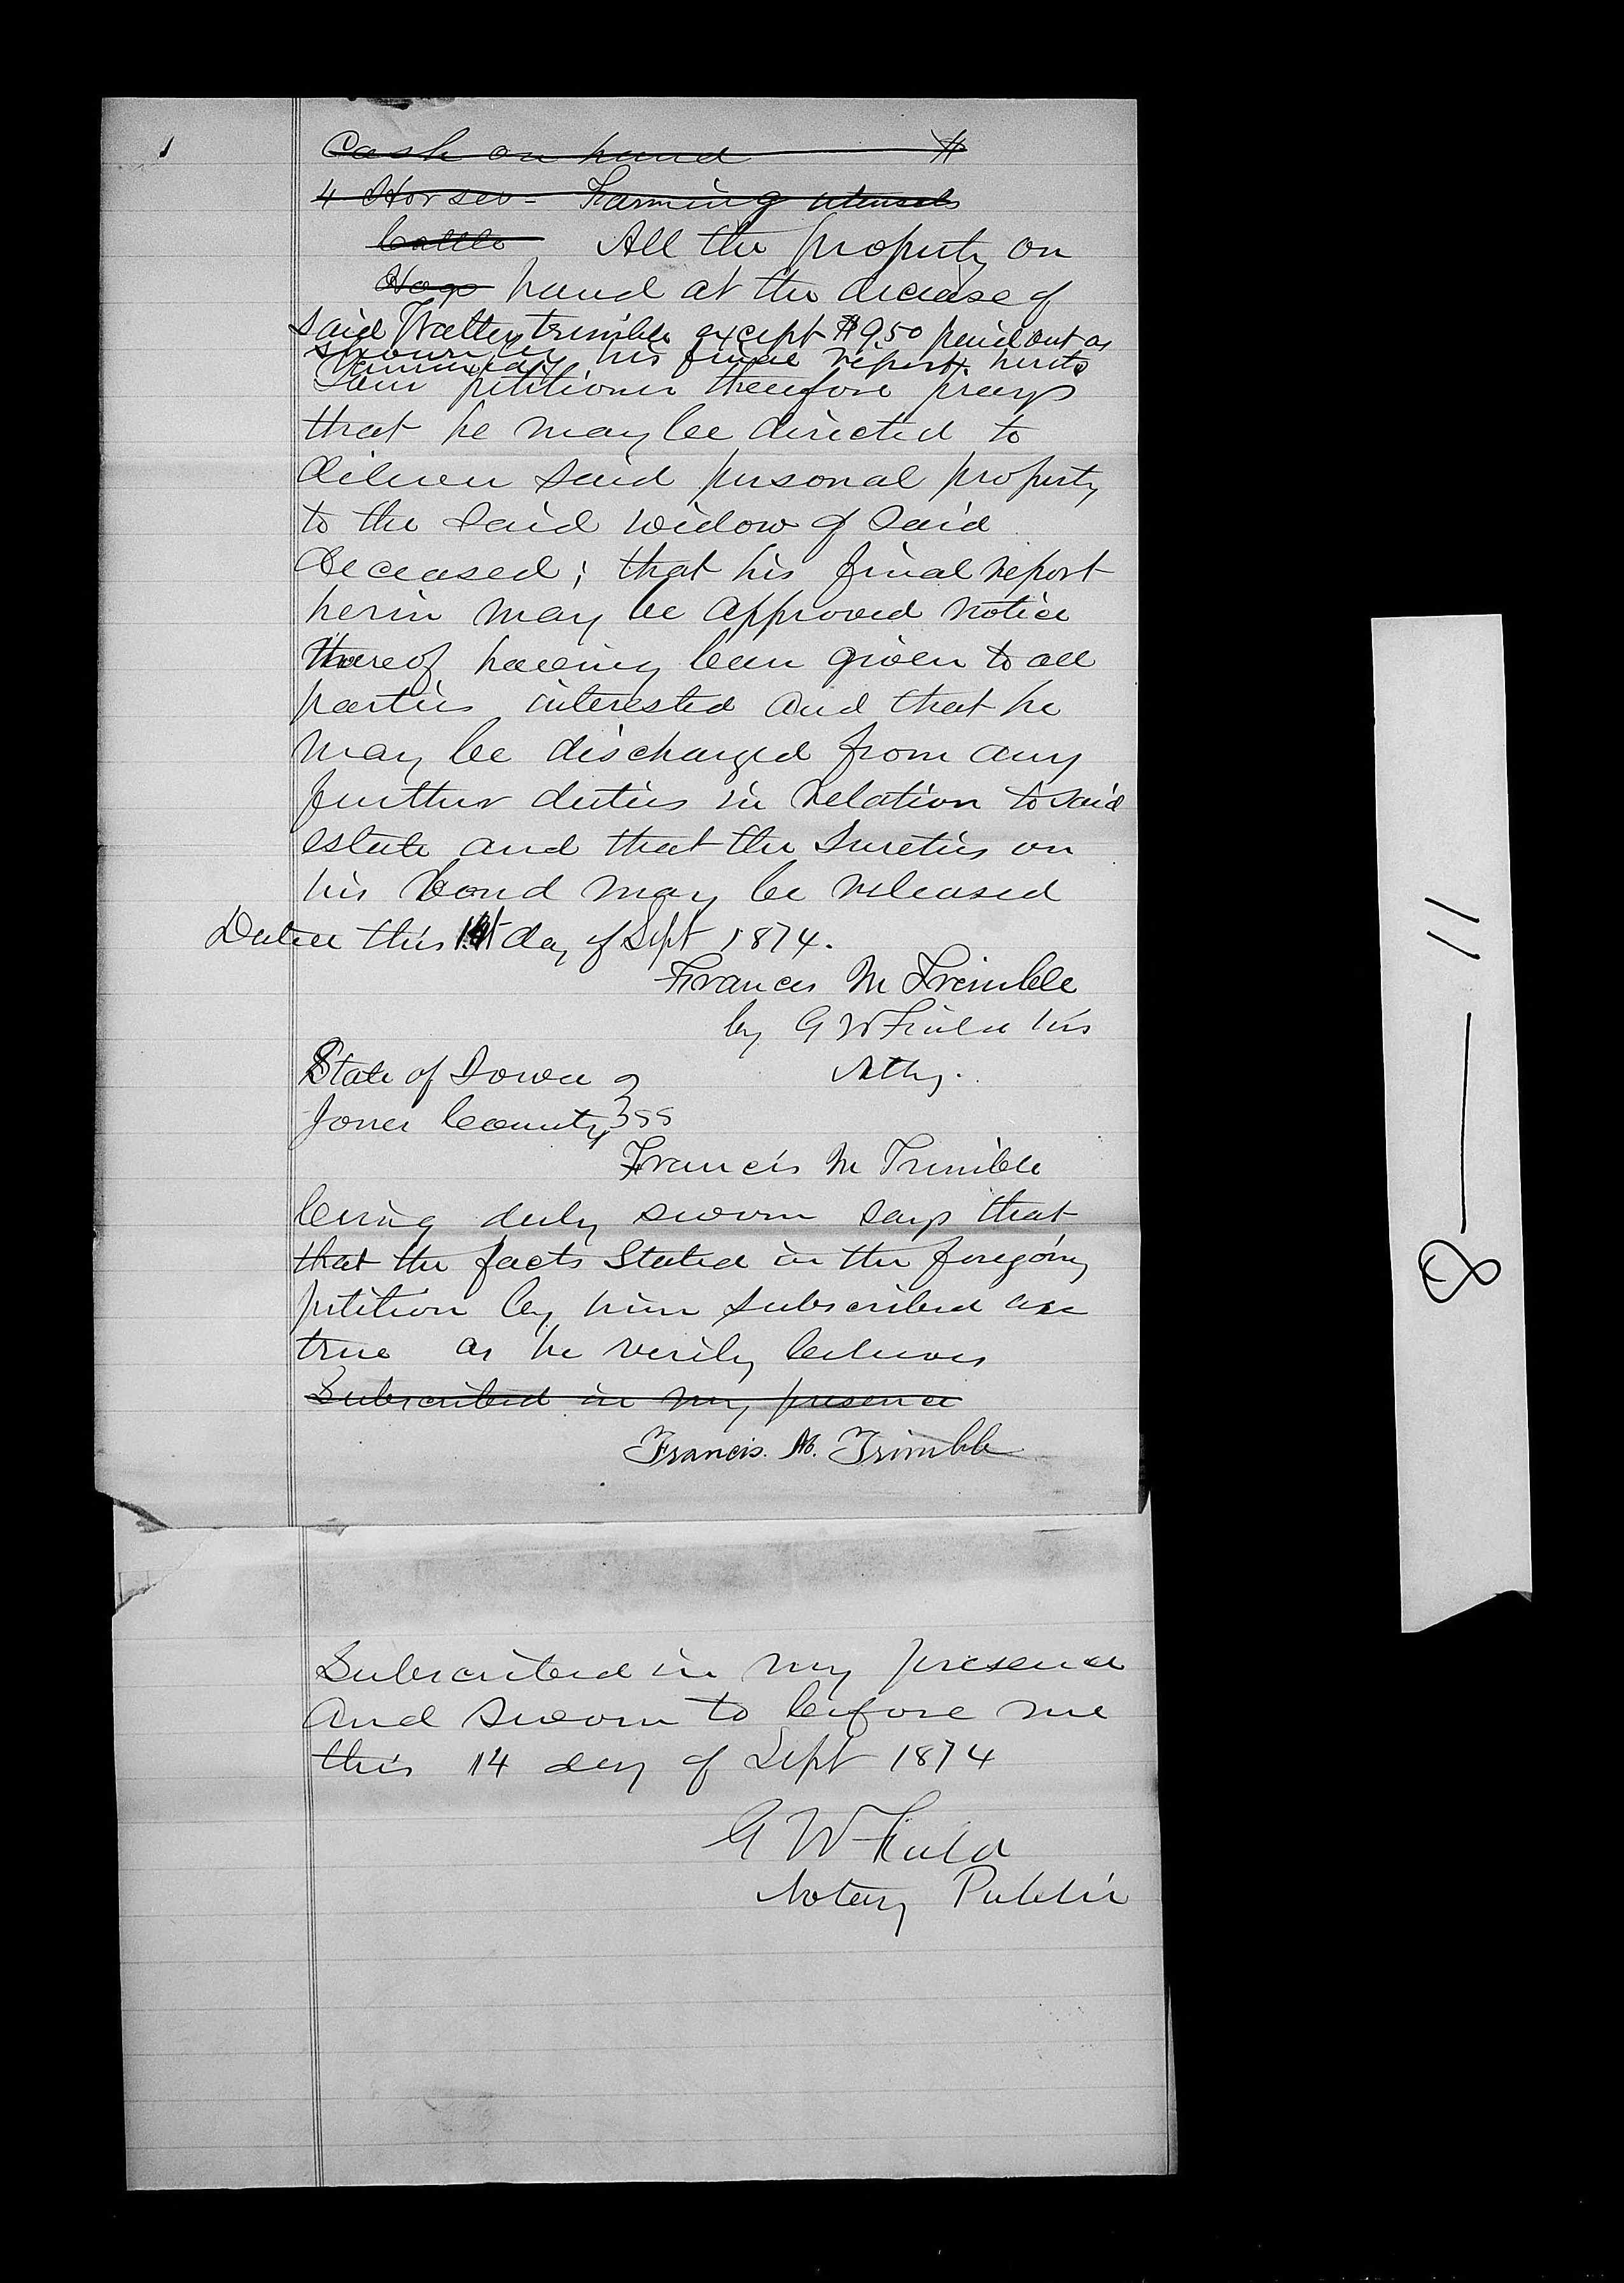 Cash on hand $
4 Horses - Farming utensils
Cattle All the property on
Hogs hand at the decease of
said Walter trimble except $9.50 paid out as
shown by his final report hereto
Said petitioner therefore prays
that he may be directed to
deliver said personal property
to the said widow of said
deceased; that his final report
herin may be approved notice
thereof having been given to all
parties interested and that he
may be discharged from any
further duties in relation to said
estate and that the Sureties on
his bond may be released
Dated this day of Sept 1874.
Francis M Trimble
by G W Field his
Atty.
State of Iowa
Jones County } ss
Francis M Trimble
being duly sworn says that
that the facts Stated in the foregoing
petition by him subscribed are
true as he verily believes
Subscribed in my presence
Francis. M. Trimble
Subscribed in my presence
and sworn to before me
this 14 day of Sept 1874
G W Field
Notary Public
8 — 11